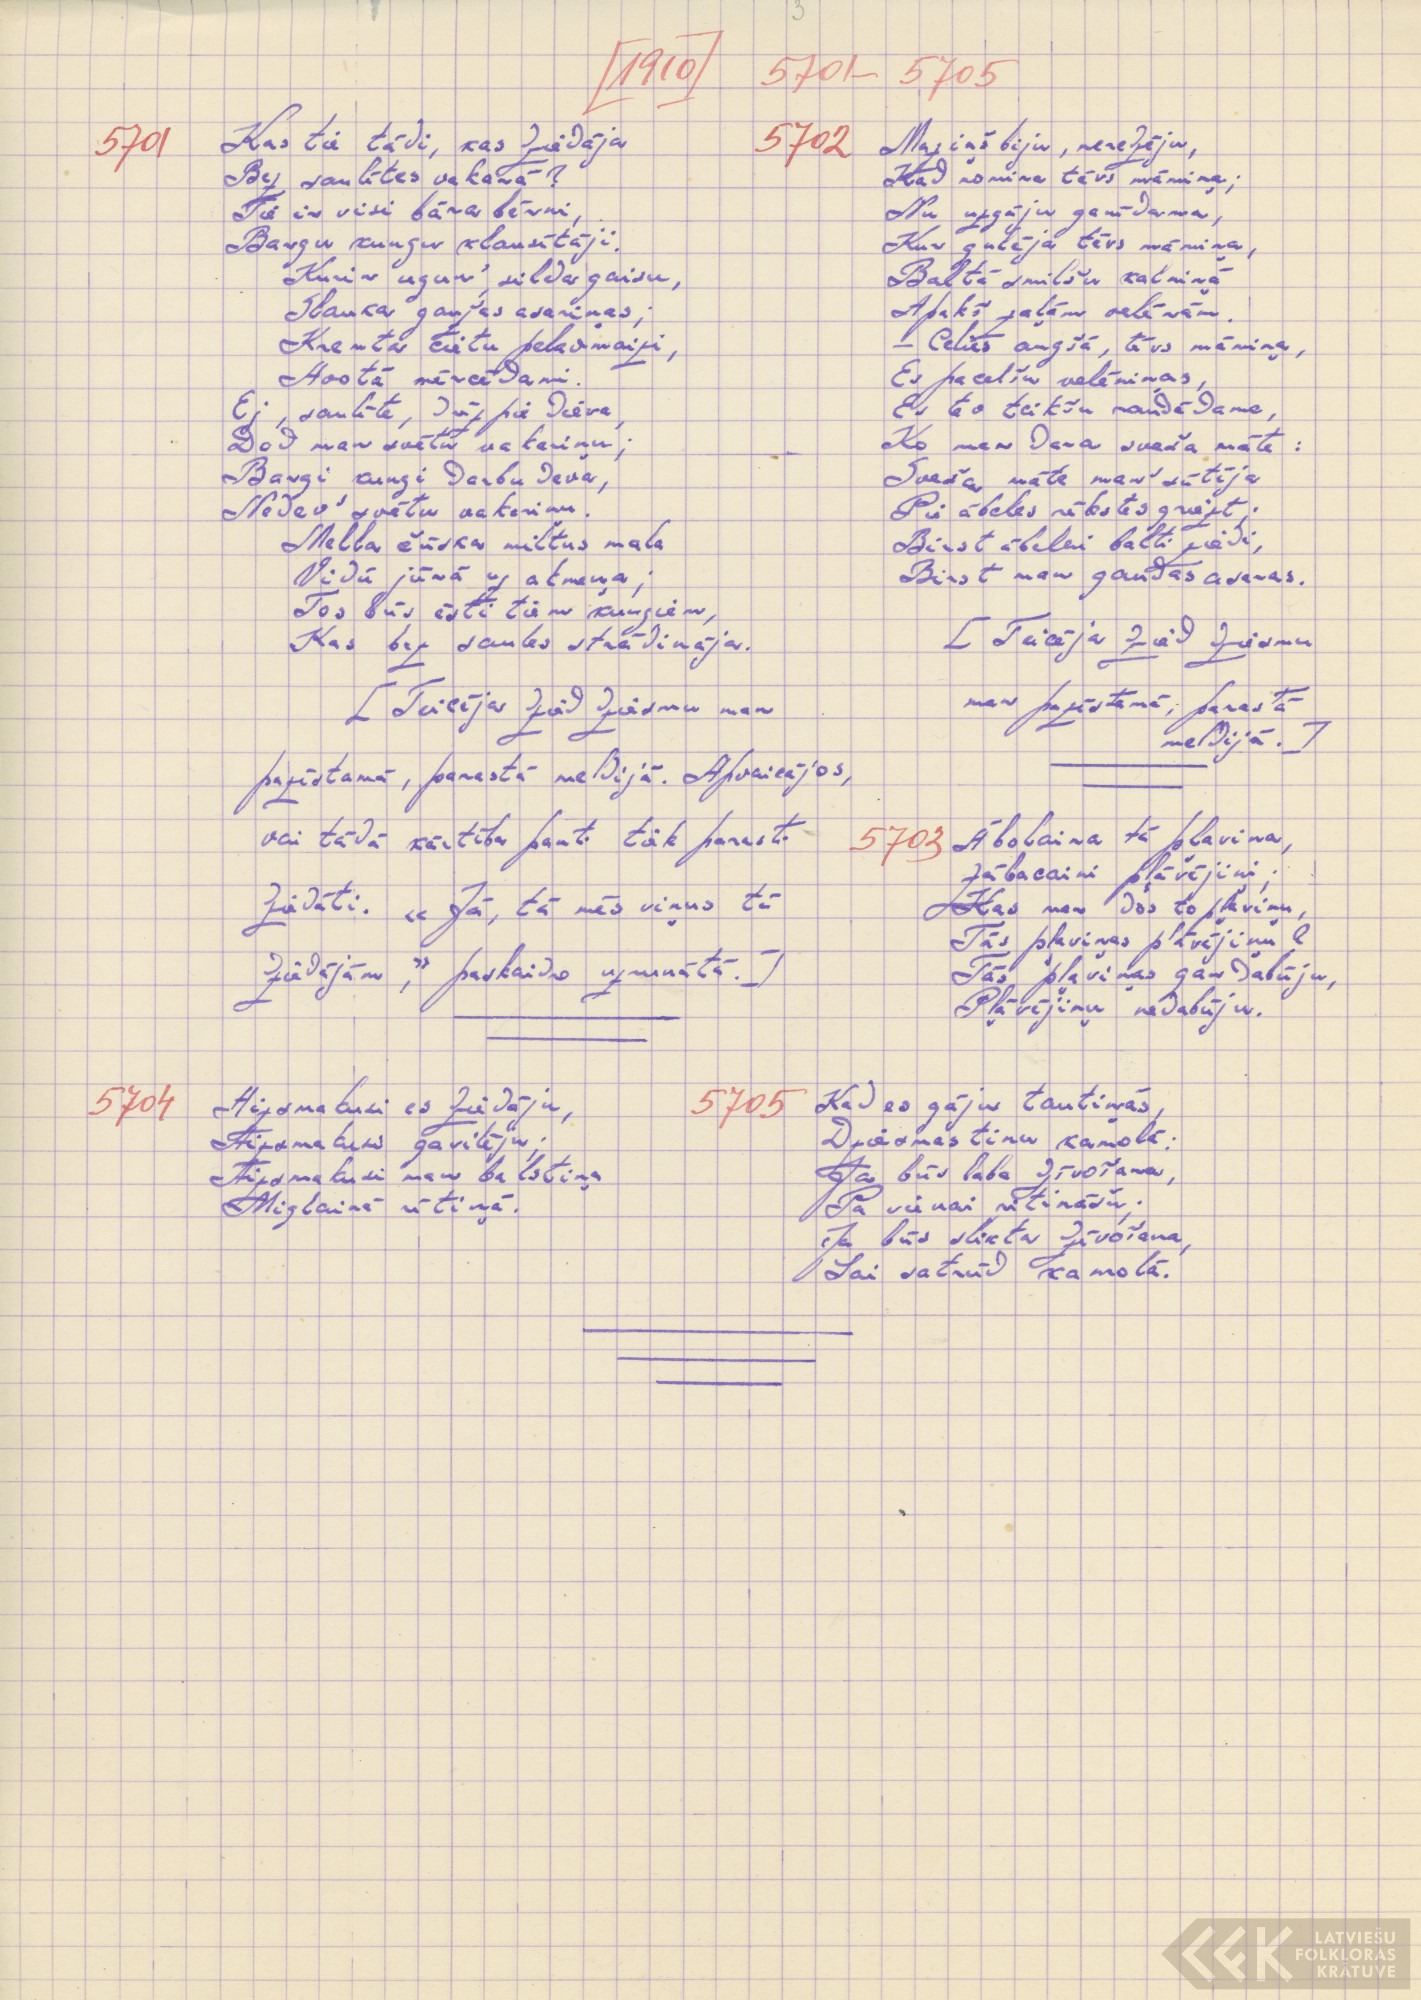 3
[1910] 5701-5705
5701
Kas tie tādi, kas dziedāja
Bez saulītes vakarā?
Tie ir visi bāra bērni,
Bargu kungu klausītāji.
Kurin ugun', silda gaisu,
Slauka gaužas asariņas;
Kremta cietu pelavmaizi,
Avotā mērcēdami.
Ej, saulīte, drīz pie Dieva,
Dod man svētu vakariņu;
Bargi kungi darbu deva,
Nedev' svētu vakariņu.
Mella čūska miltus mala
Vidū jūrā uz akmeņa;
Tos būs ēsti tiem kungiem,
Kas bez saules strādināja.
[Teicēja dzied dziesmu man
pazīstamā, parastā meldijā. Apvaicājos,
vai tādā kārtībā panti tiek parasti
dziedāti. „Jā, tā mēs viņus tā
dziedājām," paskaidro uzrunātā.]
5702
Maziņš biju, neredzēju,
Kad nomira tēvs māmiņa;
Nu uzgāju ganīdama,
Kur gulēja tēvs māmiņa,
Baltā smilšu kalniņā
Apakš zaļām velēnām.
- Celies augšā, tēvs māmiņa,
Es pacelšu velēniņas,
Es tev teikšu raudādama,
Ko man dara sveša māte:
Sveša māte man' sūtīja
Pie ābeles rīkstes griezt;
Birst ābelei balti ziedi,
Birst man gaudas asaras.
[Teicēja dzied dziesmu
man pazīstamā, parastā
meldijā.]
5703
Ābolaina tā pļaviņa,
Zābacaini pļāvējiņi;
Kas man dos to pļaviņu,
Tās pļaviņas pļāvējiņu?
Tās pļaviņas gan dabūju,
Pļāvējiņu nedabūju.
5704
Aizsmakusi es dziedāju,
Aizsmakusi gavilēju;
Aizsmakusi man balstiņa
Miglainā rītiņā.
5705
Kad es gāju tautiņās,
Dziesmas tinu kamolā:
Ja būs laba dzīvošana,
Pa vienai ritināšu;
Ja būs slikta dzīvošana,
Lai satrūd kamolā.
LATVIEŠU
FOLKLORAS
KRĀTUVE